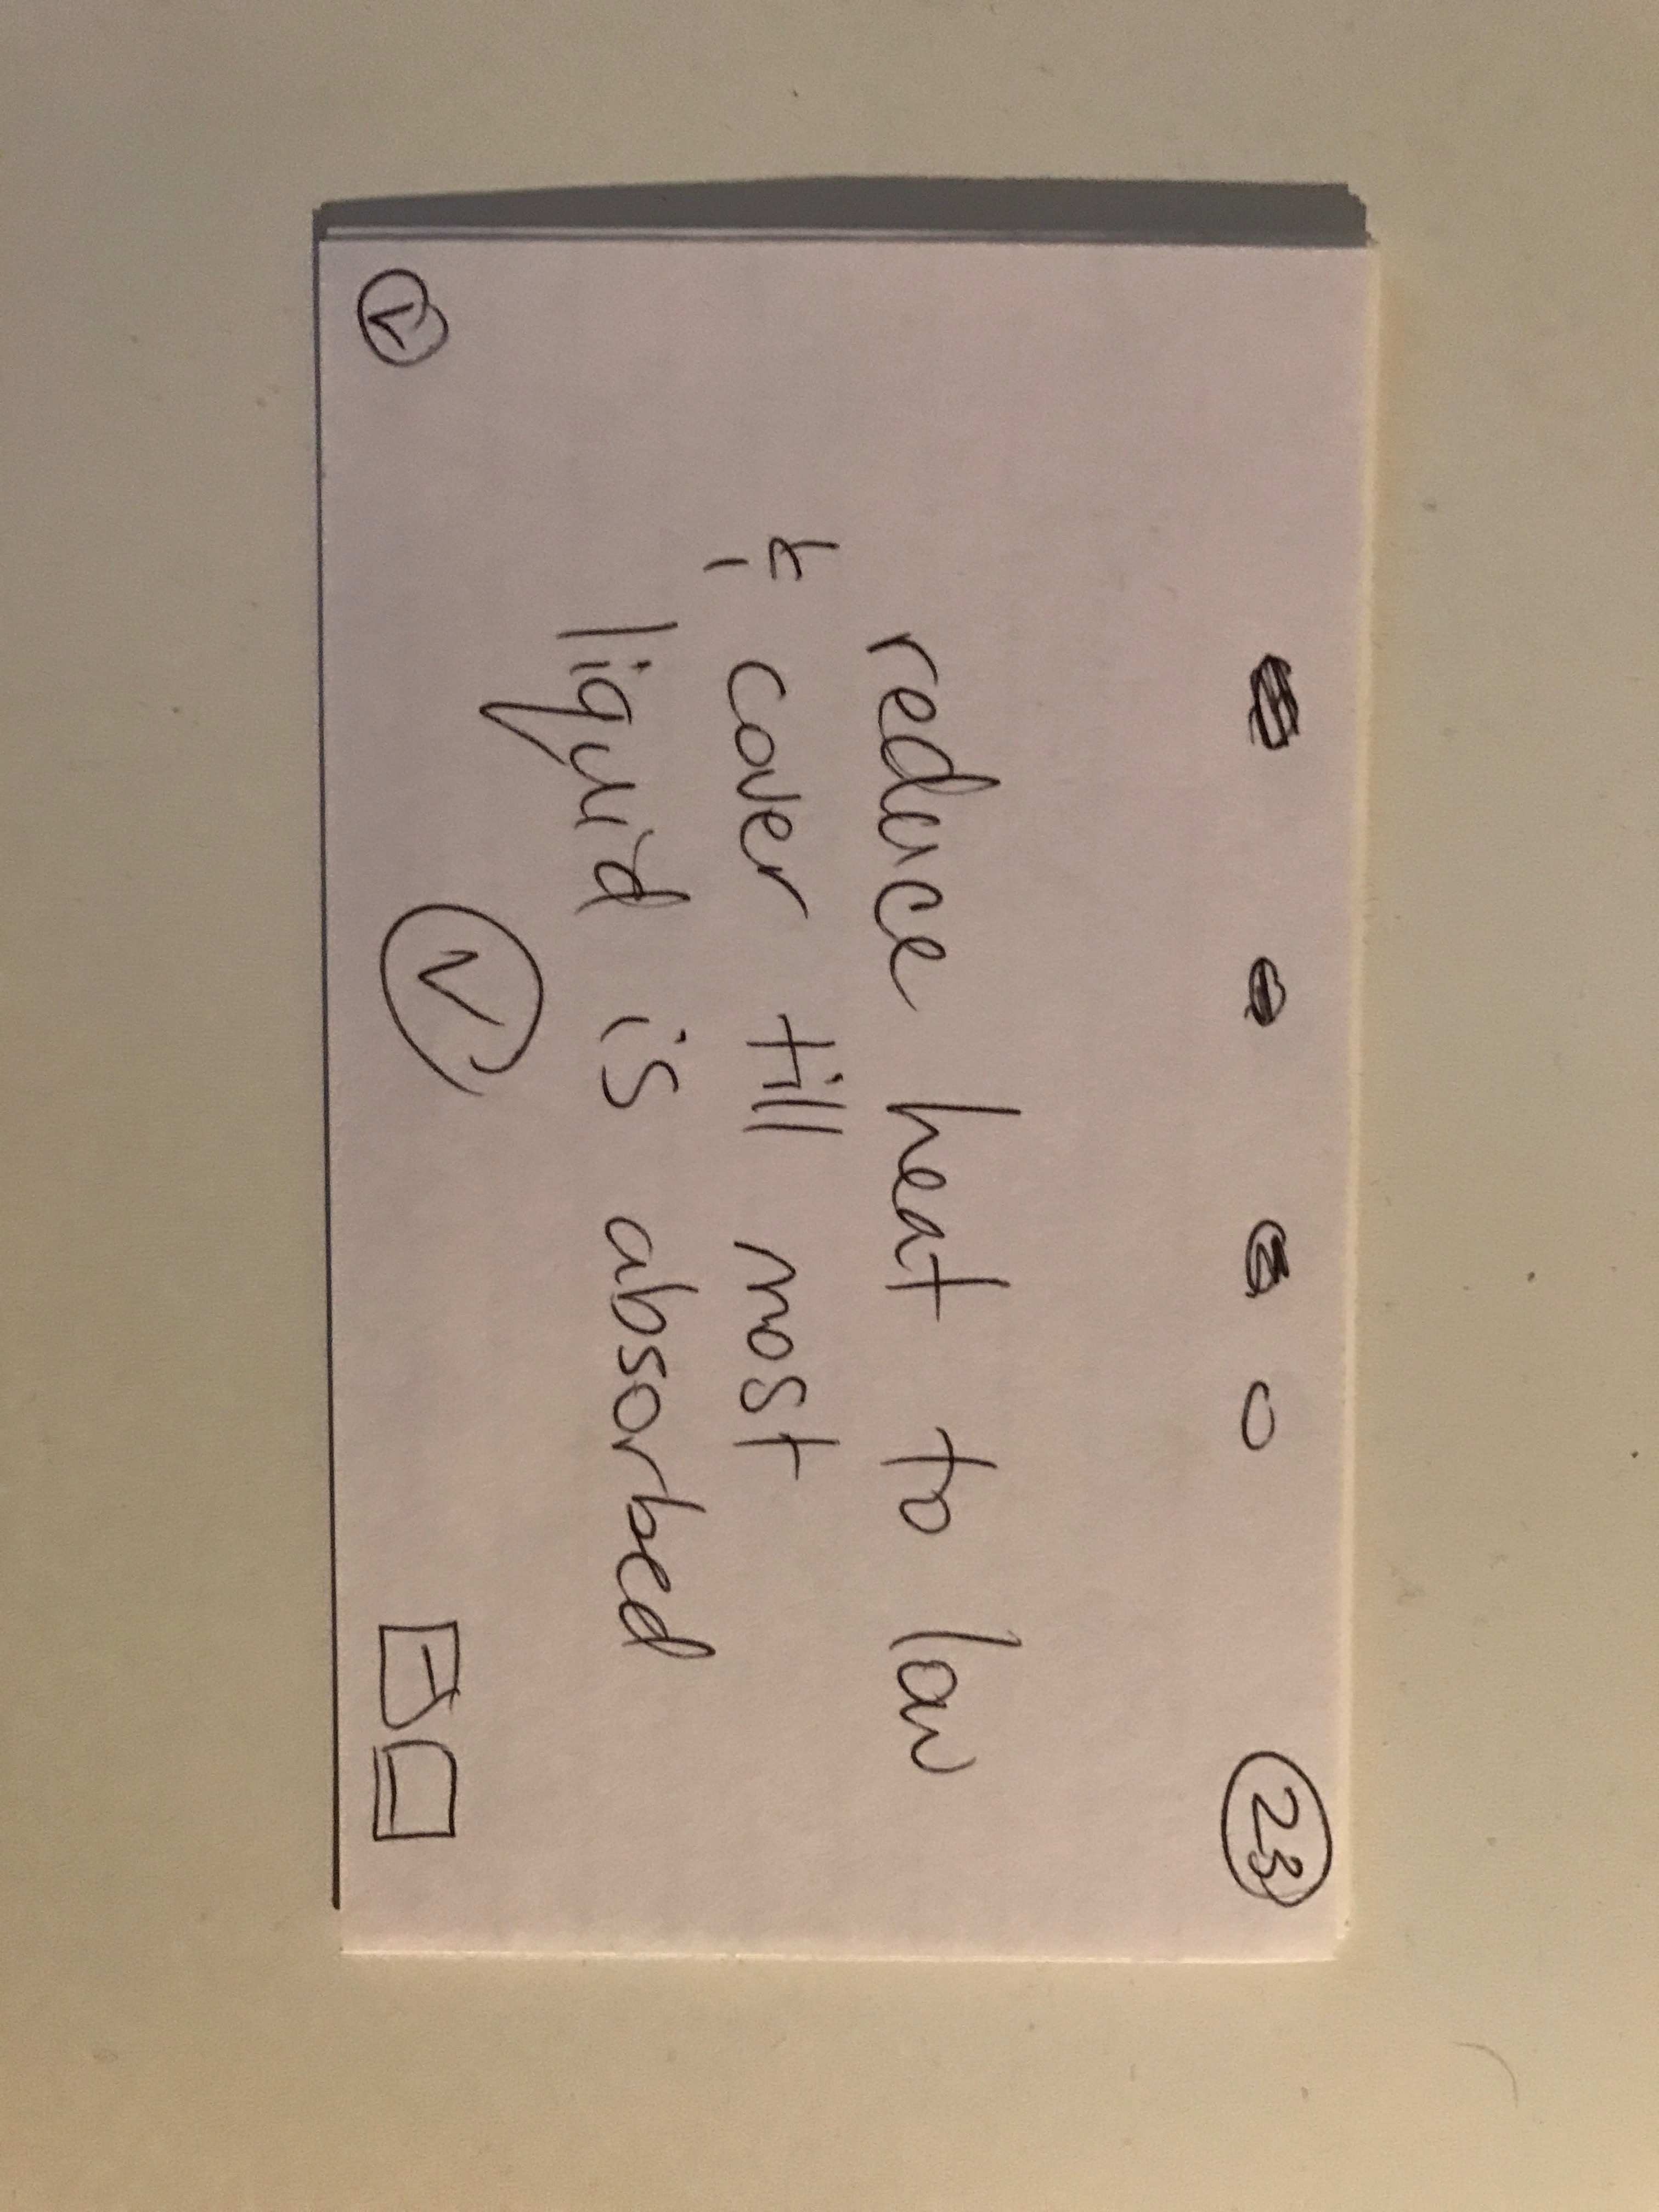 23
reduce heat to low
& cover till most
liquid is absorbed